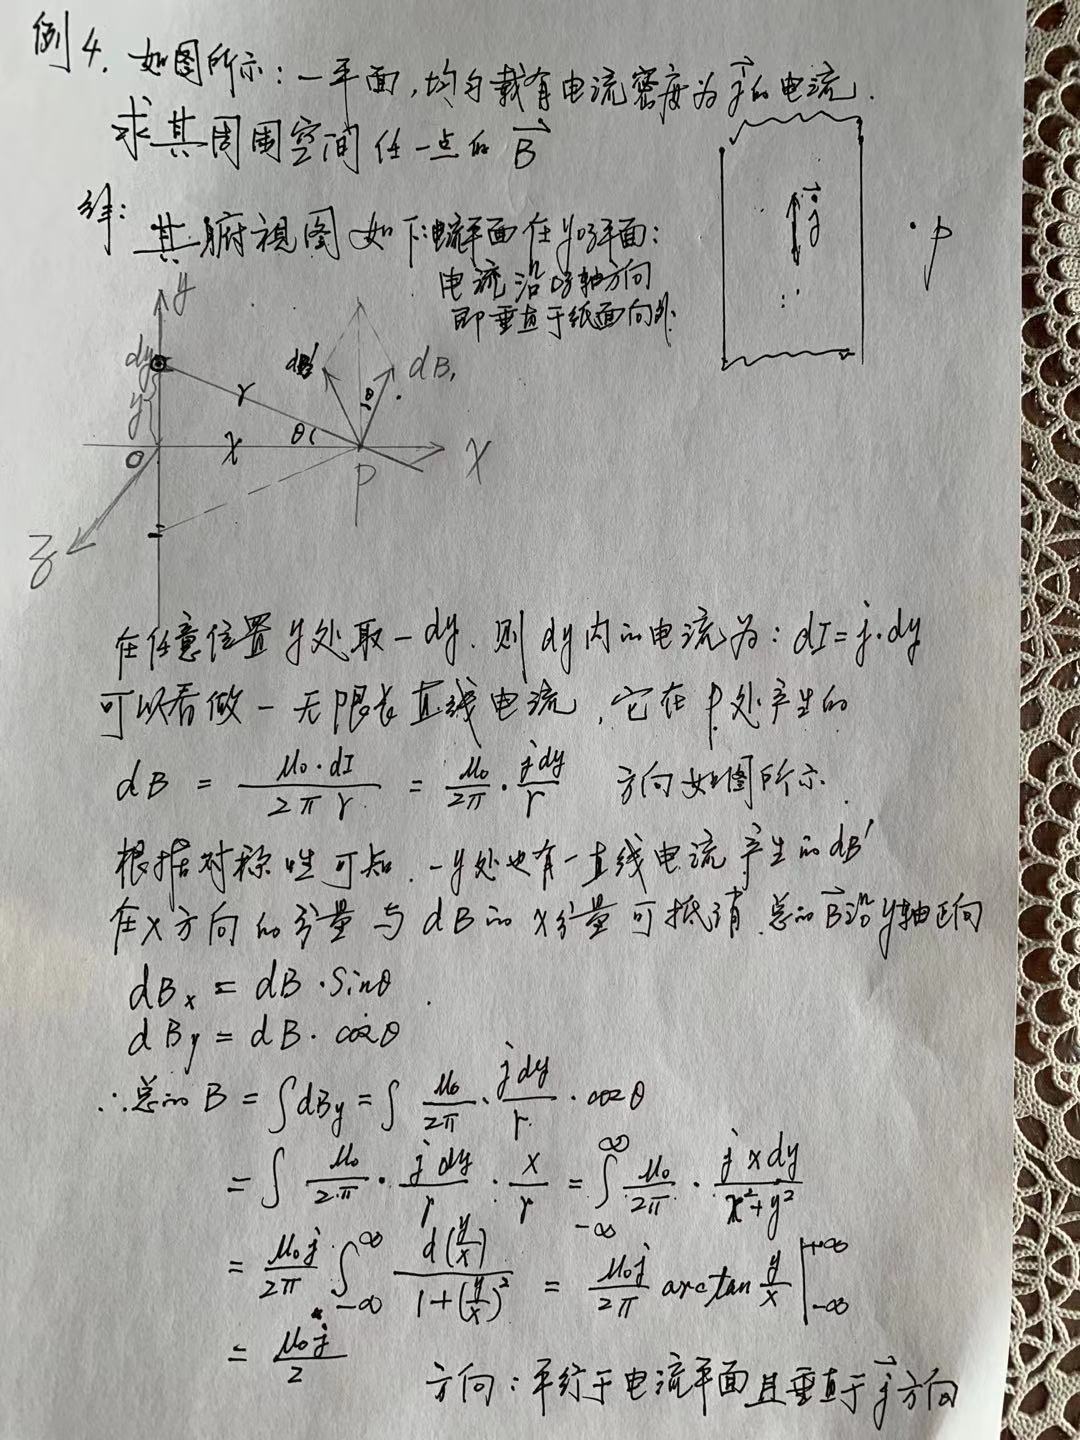 例4. 如图所示：一平面，均匀载有电流密度为j⃗的电流.
求其周围空间任一点的B⃗
j⃗
·P
解：其俯视图如下：电流平面在yoz平面：
电流沿oz轴方向
即垂直于纸面向外.
y
dy
y
r
θ
x
O
P
X
z
dB'
θ
dB,
在任意位置y处取一dy. 则dy内的电流为：dI=j·dy
可以看做一无限长直线电流，它在P处产生的
dB = μ₀·dI/2πr = μ₀/2π · jdy/r 方向如图所示.
根据对称性可知. -y处也有一直线电流产生的dB'
在x方向的分量与dB的x分量可抵消. 总的B⃗沿y轴正向
dBx = dB·Sinθ.
dBy = dB·cosθ
∴总的B = ∫dBy = ∫ μ₀/2π · jdy/r · cosθ
= ∫ μ₀/2π · jdy/r · x/r = ∫_{-∞}^{∞} μ₀/2π · jxdy/x²+y²
= μ₀j/2π ∫_{-∞}^{∞} d(y/x)/1+(y/x)² = μ₀j/2π arctan y/x |_{-∞}^{+∞}
= μ₀j/2
方向：平行于电流平面且垂直于j⃗方向